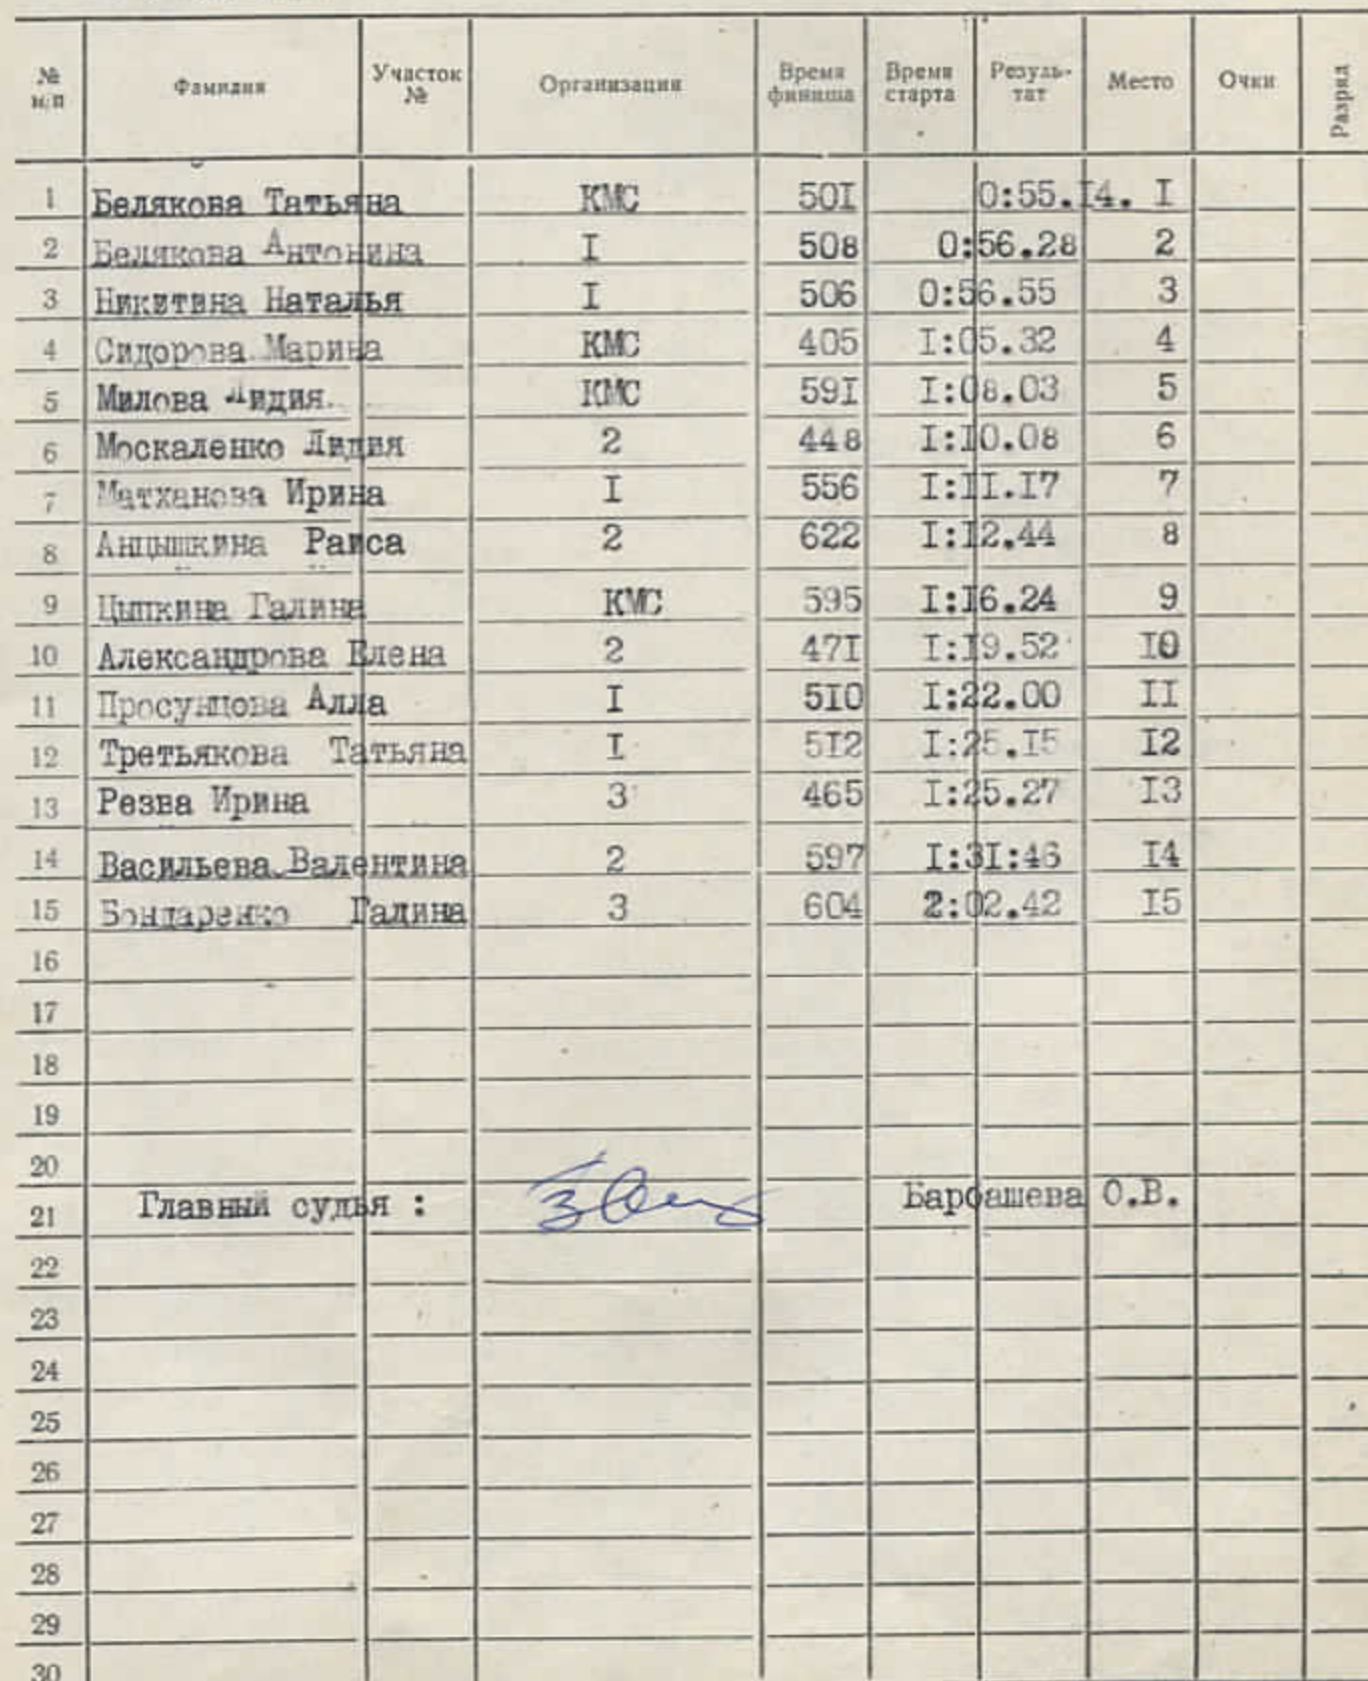 № п/п Фамилия Участок № Организация Время финиша Время старта Резуль-тат Место Очки Разряд
1 Белякова Татьяна КМС 50I 0:55.I4. I
2 Белякова Антонина I 508 0:56.28 2
3 Никитина Наталья I 506 0:56.55 3
4 Сидорова Марина КМС 405 I:05.32 4
5 Милова Лидия. КМС 59I I:08.03 5
6 Москаленко Лидия 2 448 I:I0.08 6
7 Матханова Ирина I 556 I:II.I7 7
8 Анцышкина Раиса 2 622 I:I2.44 8
9 Цыпкина Галина КМС 595 I:I6.24 9
10 Александрова Елена 2 47I I:I9.52 I0
11 Просунцова Алла I 5I0 I:22.00 II
12 Третьякова Татьяна I 5I2 I:25.I5 I2
13 Резва Ирина 3 465 I:25.27 I3
14 Васильева Валентина 2 597 I:3I:46 I4
15 Бондаренко Галина 3 604 2:02.42 I5
16
17
18
19
20
21 Главный судья : Барбашева О.В.
22
23
24
25
26
27
28
29
30